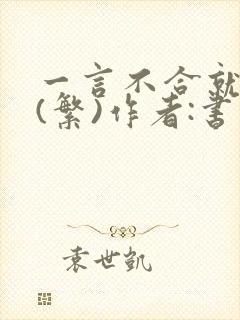 一言不合就
(繁)作者:書
袁世凱